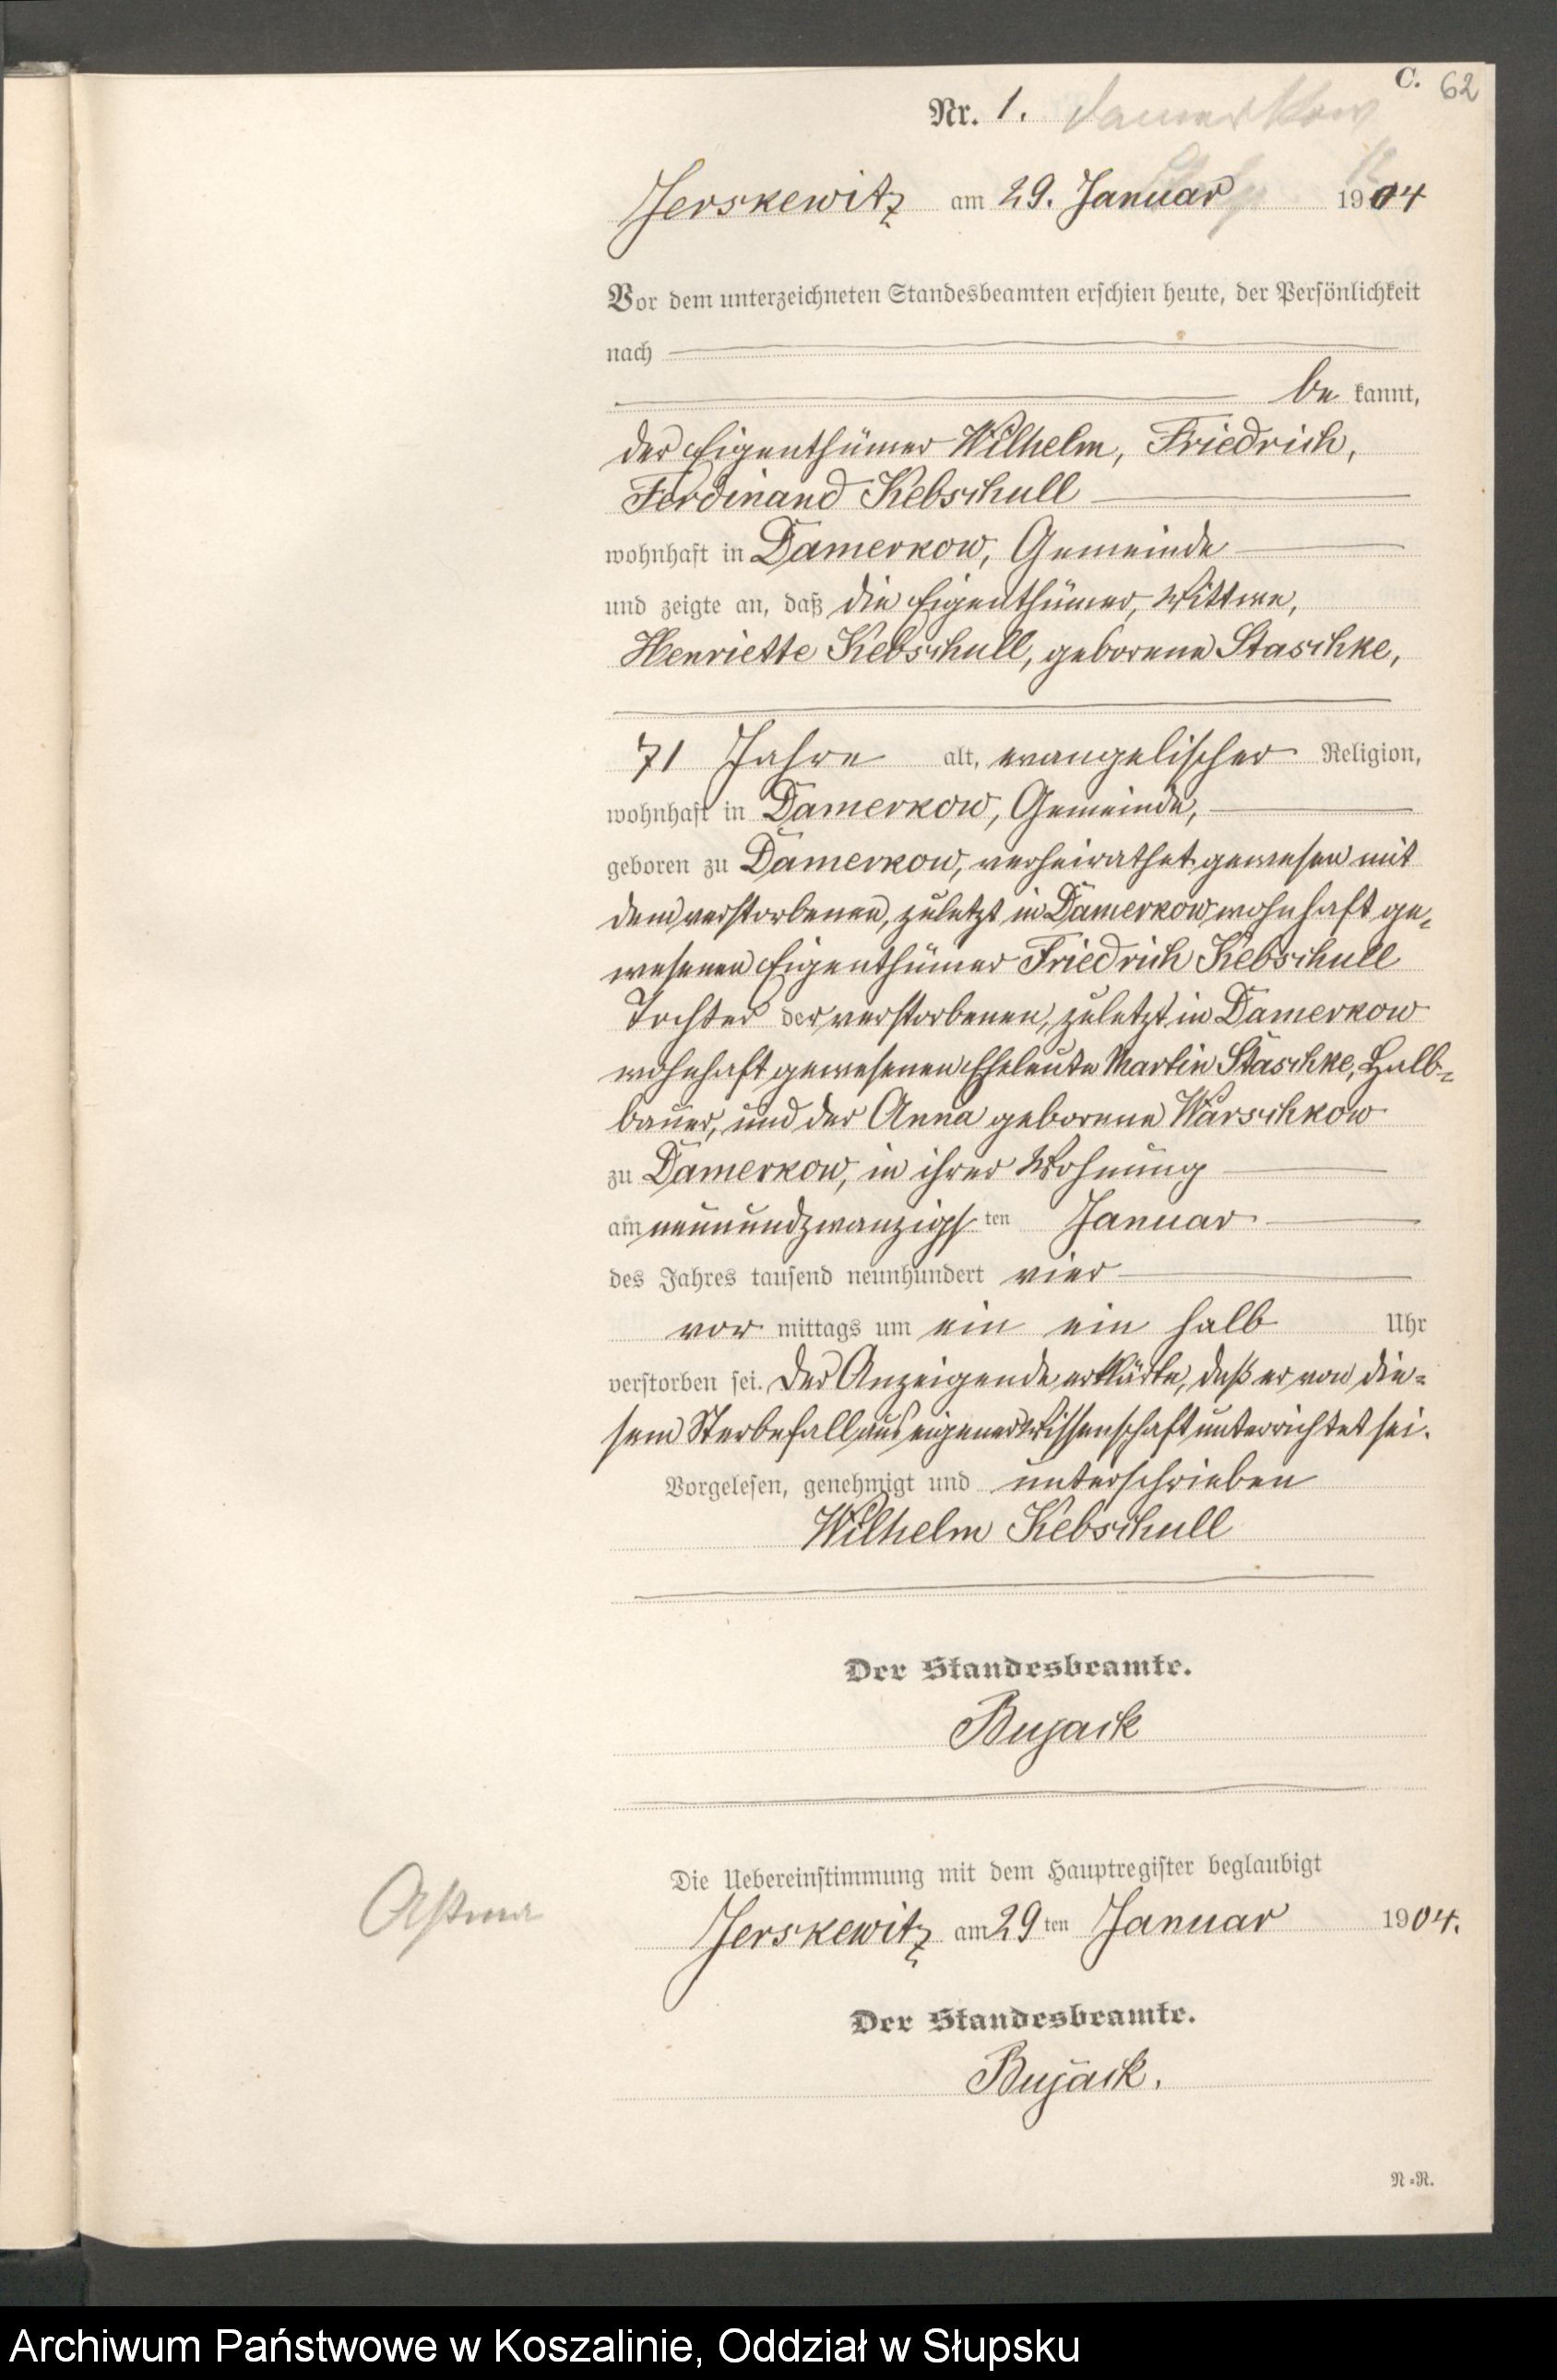 C. 62
Nr. 1. Damerkow
Jerskewitz am 29. Januar 1904
Vor dem unterzeichneten Standesbeamten erschien heute, der Persönlichkeit
nach
be kannt,
der Eigenthümer Wilhelm, Friedrich,
Ferdinand Kebschull
wohnhaft in Damerkow, Gemeinde
und zeigte an, daß die Eigenthümer, Wittwe,
Henriette Kebschull, geborene Staschke,
71 Jahre alt, evangelischer Religion,
wohnhaft in Damerkow, Gemeinde,
geboren zu Damerkow, verheirathet gewesen mit
dem verstorbenen, zuletzt in Damerkow wohnhaft ge-
wesenen Eigenthümer Friedrich Kebschull
Tochter der verstorbenen, zuletzt in Damerkow
wohnhaft gewesenen Eheleute Martin Staschke, Halb-
bauer, und der Anna geborene Warschkow
zu Damerkow, in ihrer Wohnung
am neunundzwanzigsten Januar
des Jahres tausend neunhundert vier
vor mittags um ein ein halb Uhr
verstorben sei. Der Anzeigende erklärte, daß er von die-
sem Sterbefall aus eigener Wissenschaft unterrichtet sei.
Vorgelesen, genehmigt und unterschrieben
Wilhelm Kebschull
Der Standesbeamte.
Bujack
Die Uebereinstimmung mit dem Hauptregister beglaubigt
Jerskewitz am 29 ten Januar 1904.
Der Standesbeamte.
Bujack.
N=R.
Archiwum Państwowe w Koszalinie, Oddział w Słupsku